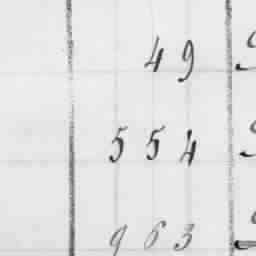 49
554
963